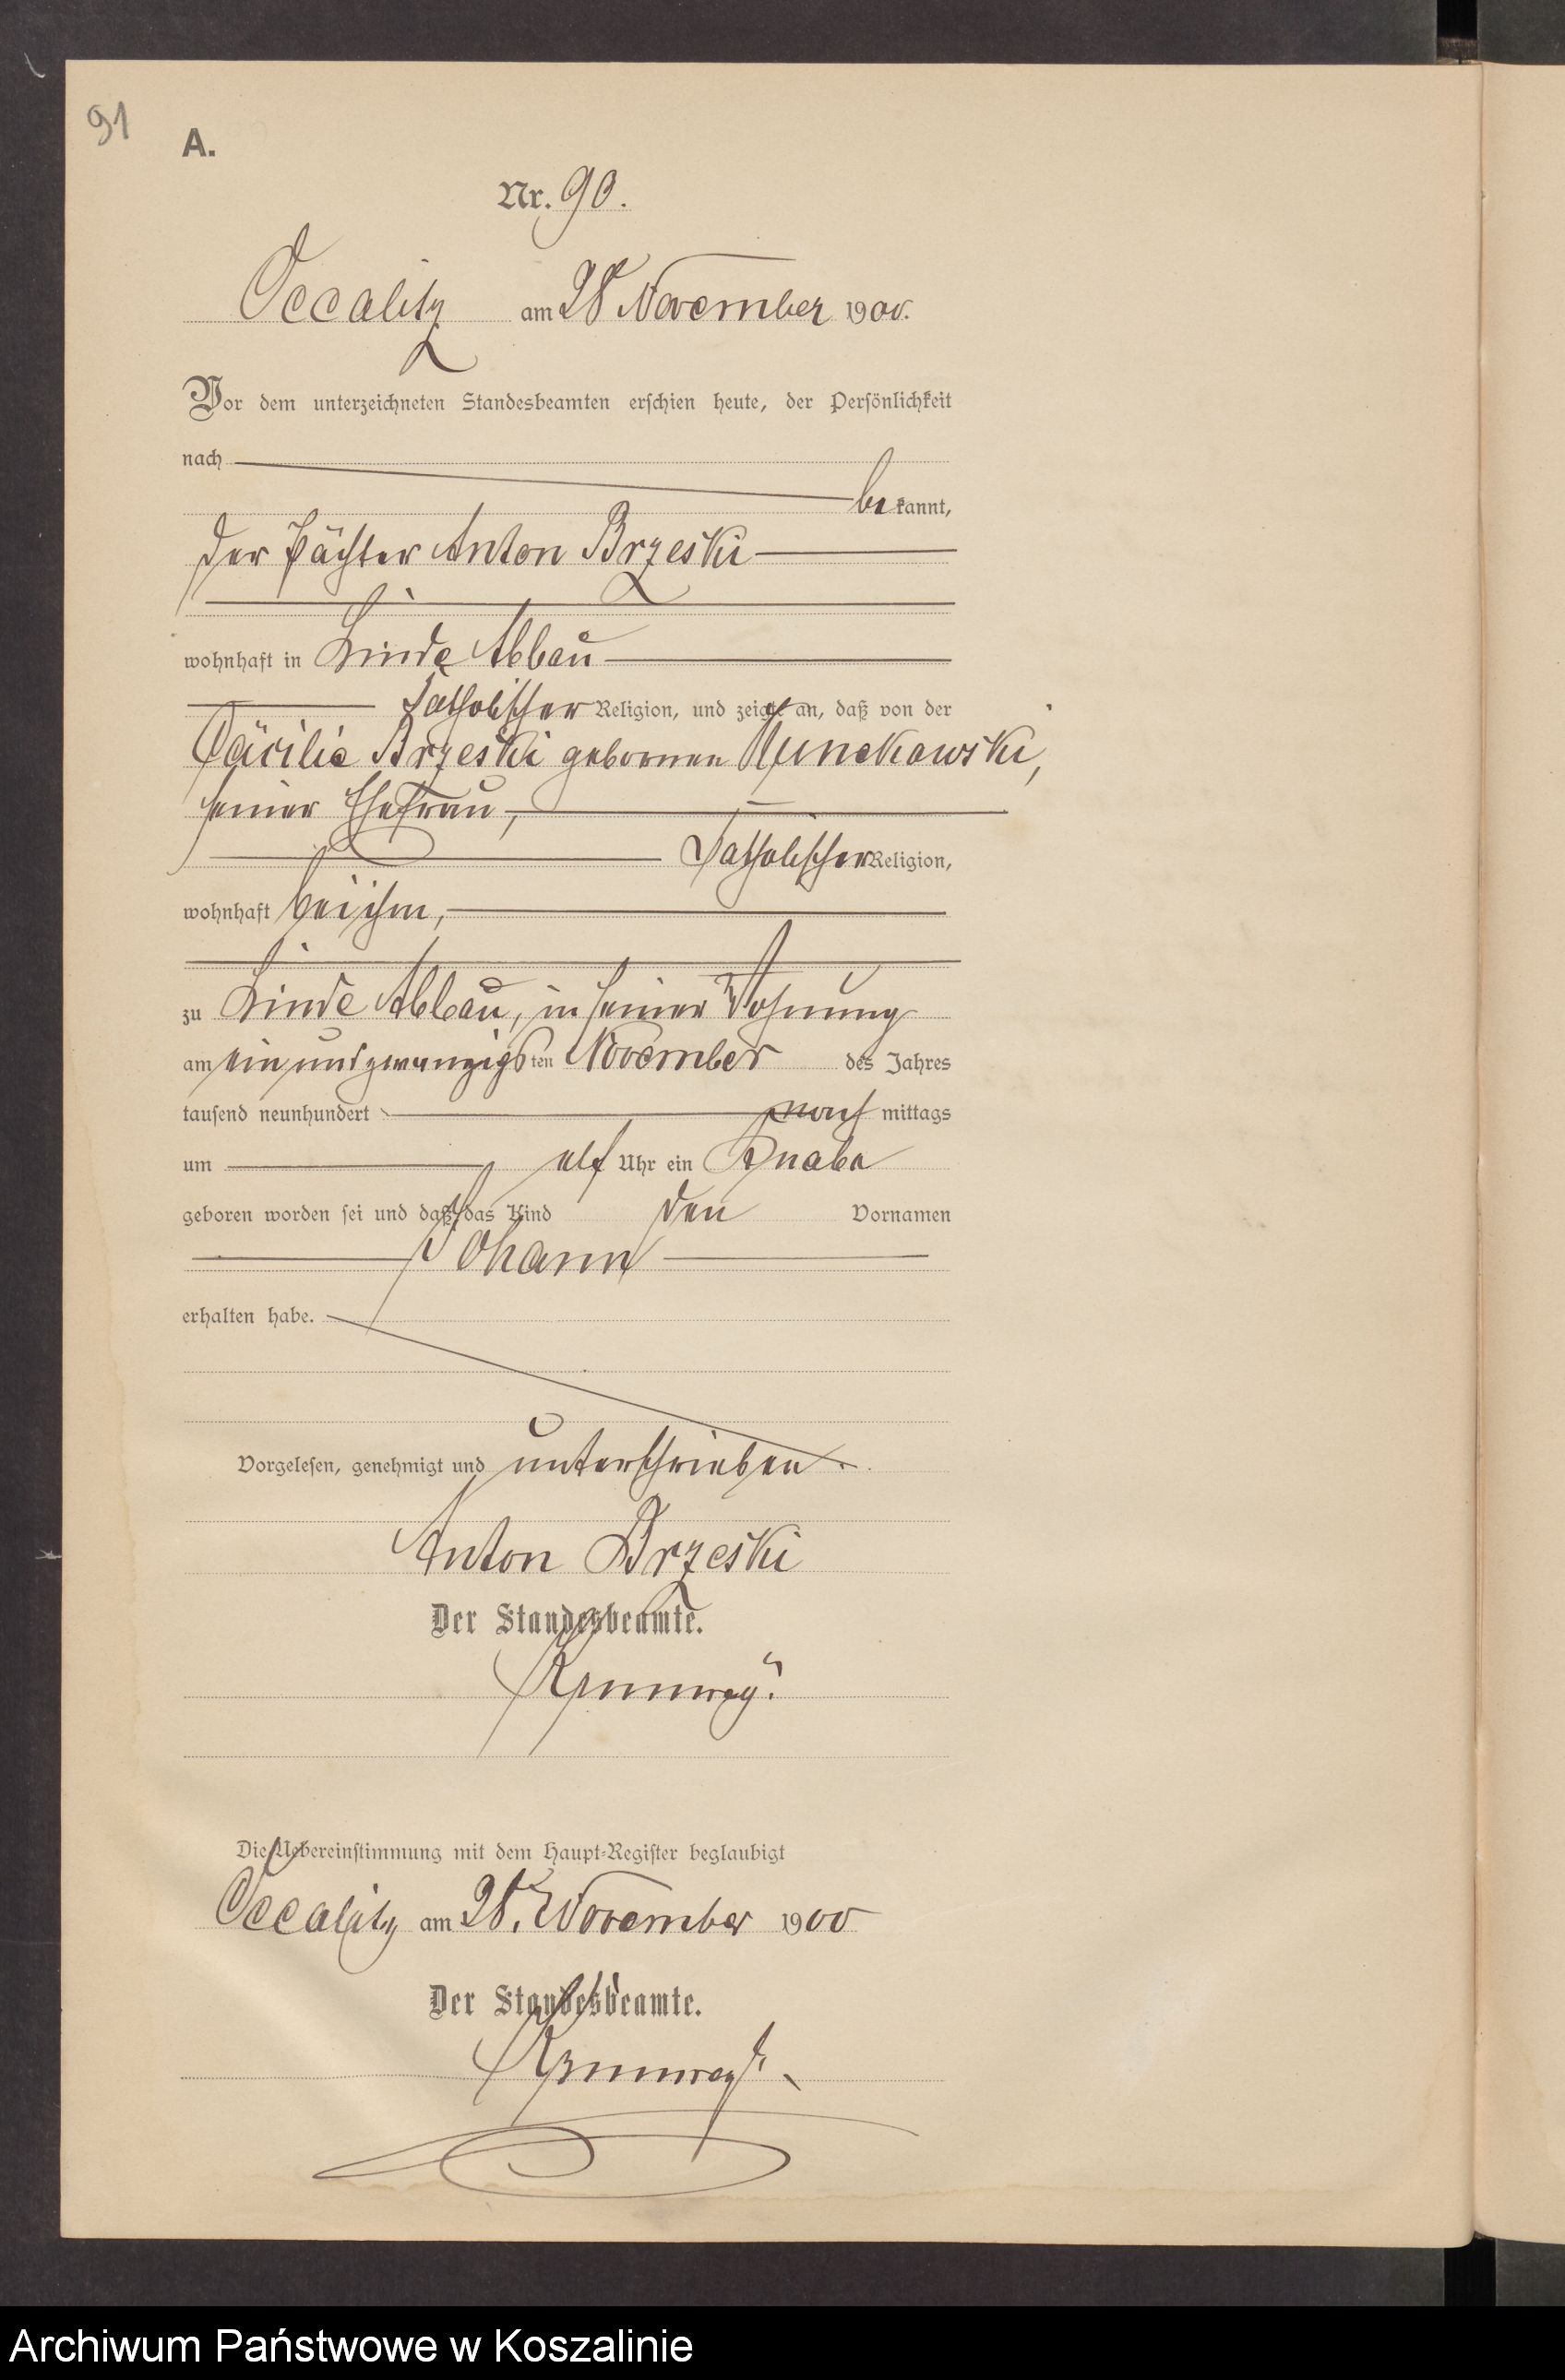 91
A.
Nr. 90.
Occalitz am 28 November 1900.
Vor dem unterzeichneten Standesbeamten erschien heute, der Persönlichkeit
nach
bekannt,
der Pächter Anton Brzeski
wohnhaft in Linde Abbau
katholischer Religion, und zeigte an, daß von der
Cäcilie Brzeski gebornen
seiner Ehefrau,
katholischer Religion,
wohnhaft bei ihm,
zu Linde Abbau, in seiner Wohnung
am ein und zwanzigsten November des Jahres
tausend neunhundert nachmittags
um elf Uhr ein Knabe
geboren worden sei und daß das Kind den Vornamen
Johann
erhalten habe.
Vorgelesen, genehmigt und unterschrieben.
Anton Brzeski
Der Standesbeamte.
Die Uebereinstimmung mit dem Haupt-Register beglaubigt
Occalitz am 28. November 1900
Der Standesbeamte.
Archiwum Państwowe w Koszalinie